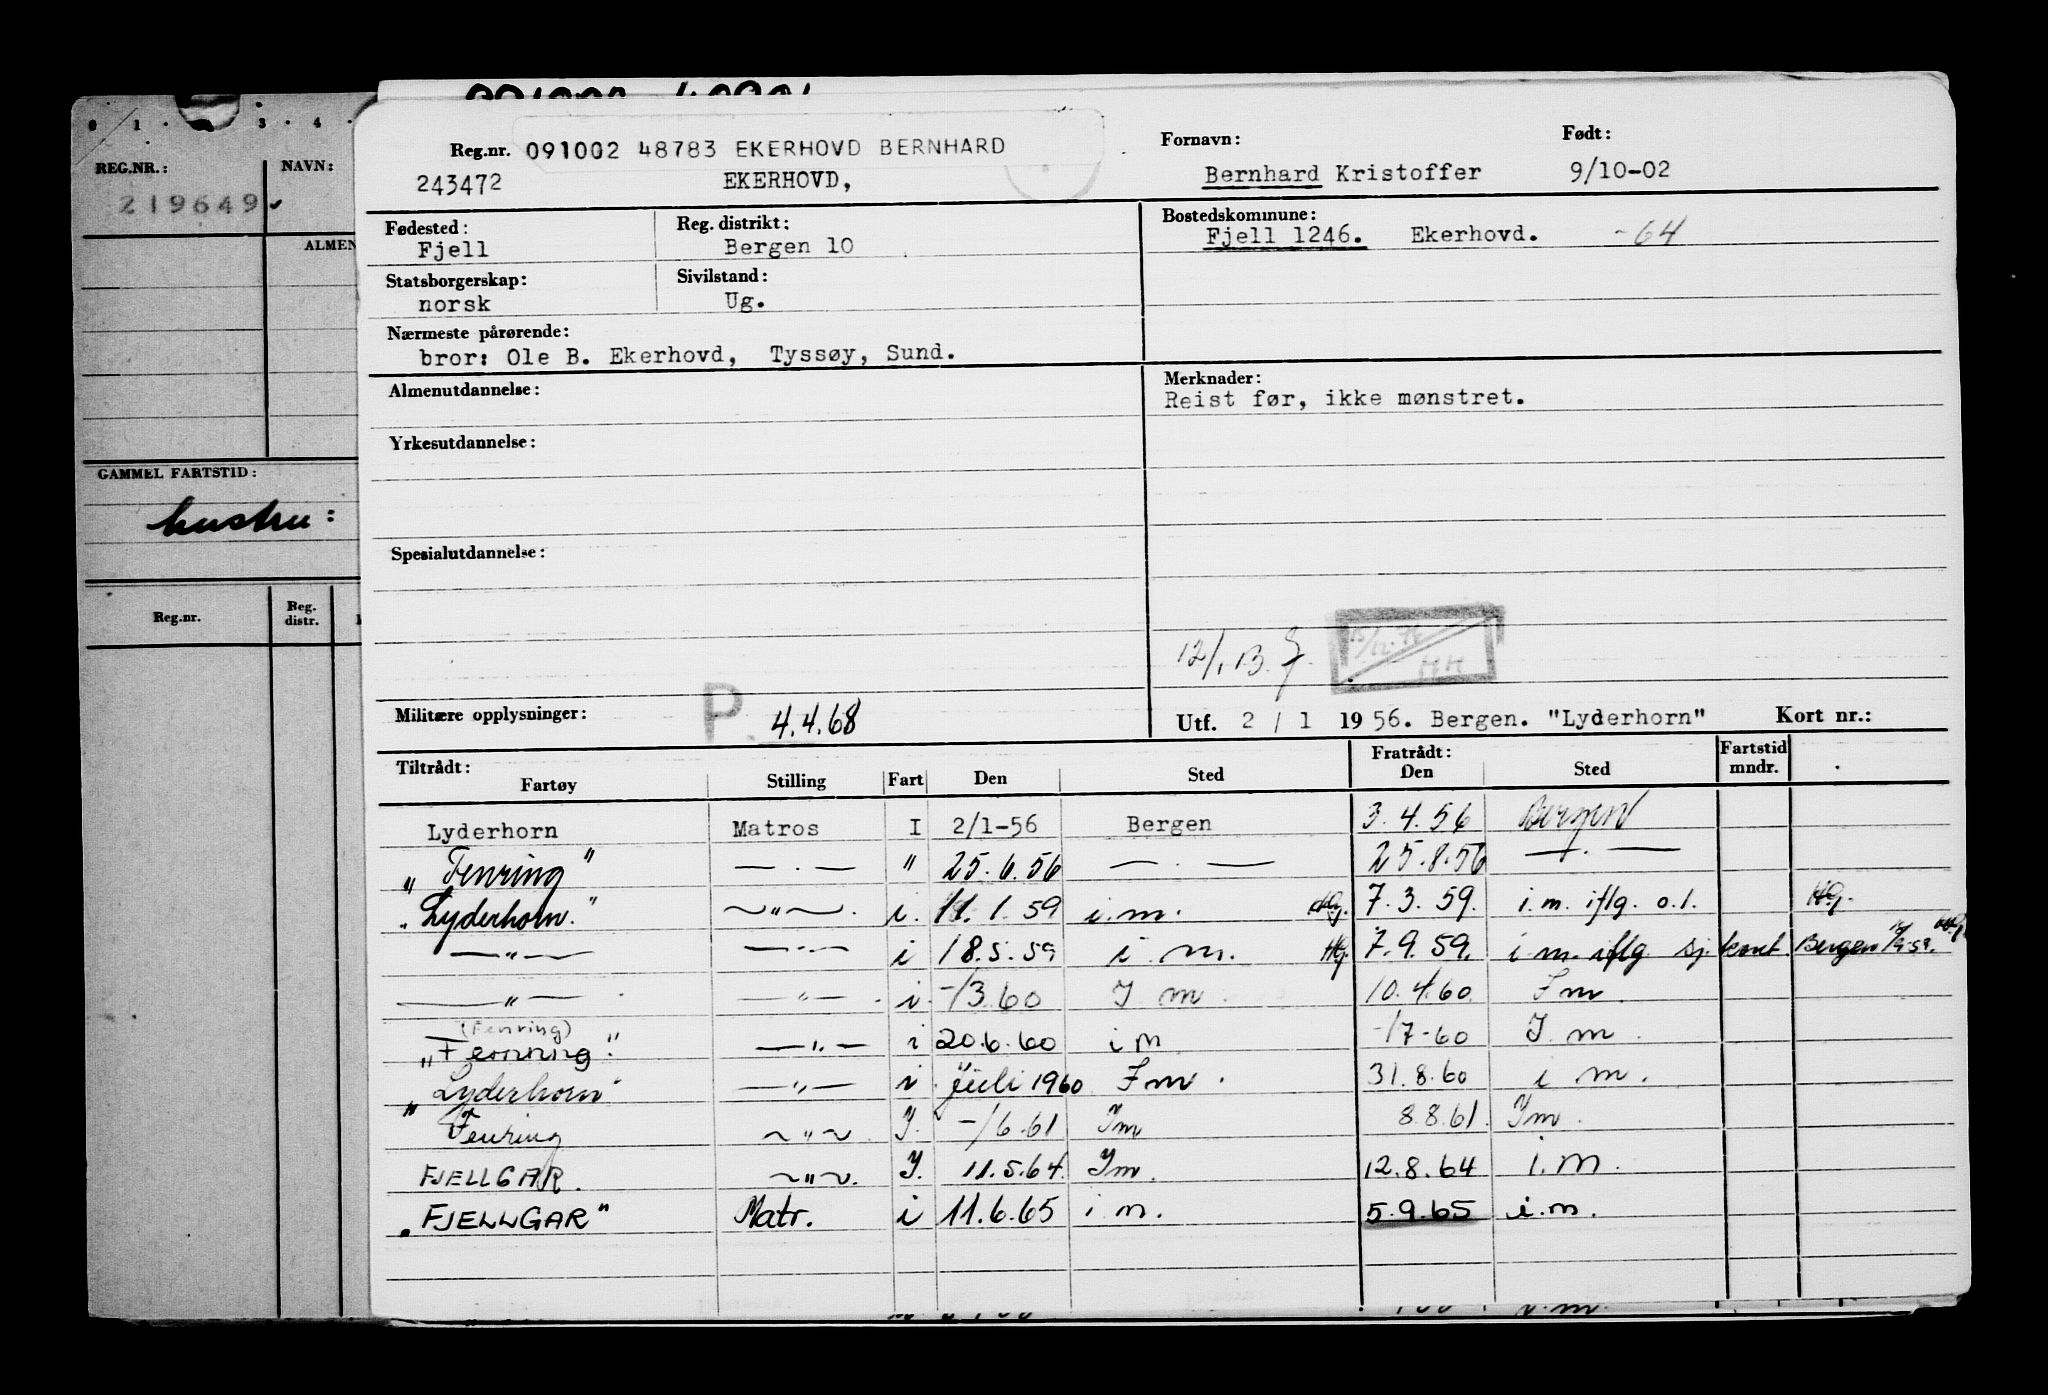 0 1 · 3 · 4 ·
REG.NR.: NAVN:
219649
ALMEN
GAMMEL FARTSTID:
hustru:
Reg.nr. Reg. distr.
Reg.nr. 091002 48783 EKERHOVD BERNHARD Fornavn: Født:
243472 EKERHOVD, Bernhard Kristoffer 9/10-02
Fødested: Reg. distrikt: Bostedskommune:
Fjell Bergen 10 Fjell 1246. Ekerhovd. -64
Statsborgerskap: Sivilstand:
norsk Ug.
Nærmeste pårørende:
bror: Ole B. Ekerhovd, Tyssøy, Sund.
Almenutdannelse: Merknader:
Reist før, ikke mønstret.
Yrkesutdannelse:
Spesialutdannelse:
12/1 B.
HH
Militære opplysninger: P. 4.4.68 Utf. 2 / 1 1956. Bergen. "Lyderhorn" Kort nr.:
Tiltrådt: Fratrådt: Fartstid mndr.
Fartøy Stilling Fart Den Sted Den Sted
Lyderhorn Matros I 2/1-56 Bergen 3.4.56 Bergen
"Fenring" — . — " 25.6.56 — . — 25.8.56 — . —
"Lyderhorn." ~"~. i. 11.1.59 i.m. HG. 7.3.59. i.m. iflg. o.l. HG.
— " — — " — i 18.5.59 i.m. HG. 7.9.59. i m. iflg. Sj kont. Bergen 18/9.59. HG.
— " — — " — . i. -/3.60 I m. 10.4.60. I m.
(Fenring)
"Femring." — " — i 20.6.60 i m -/7-60 I m.
"Lyderhorn" — " — i. Juli 1960 I m. 31.8.60 i m.
Fenring ~ " ~ I. -/6.61 Im 8.8.61. Im.
FJELLGAR. ~ " ~. I. 11.5.64. Im. 12.8.64 i.m.
"FJELLGAR" Matr. i 11.6.65 i.m. 5.9.65 i.m.